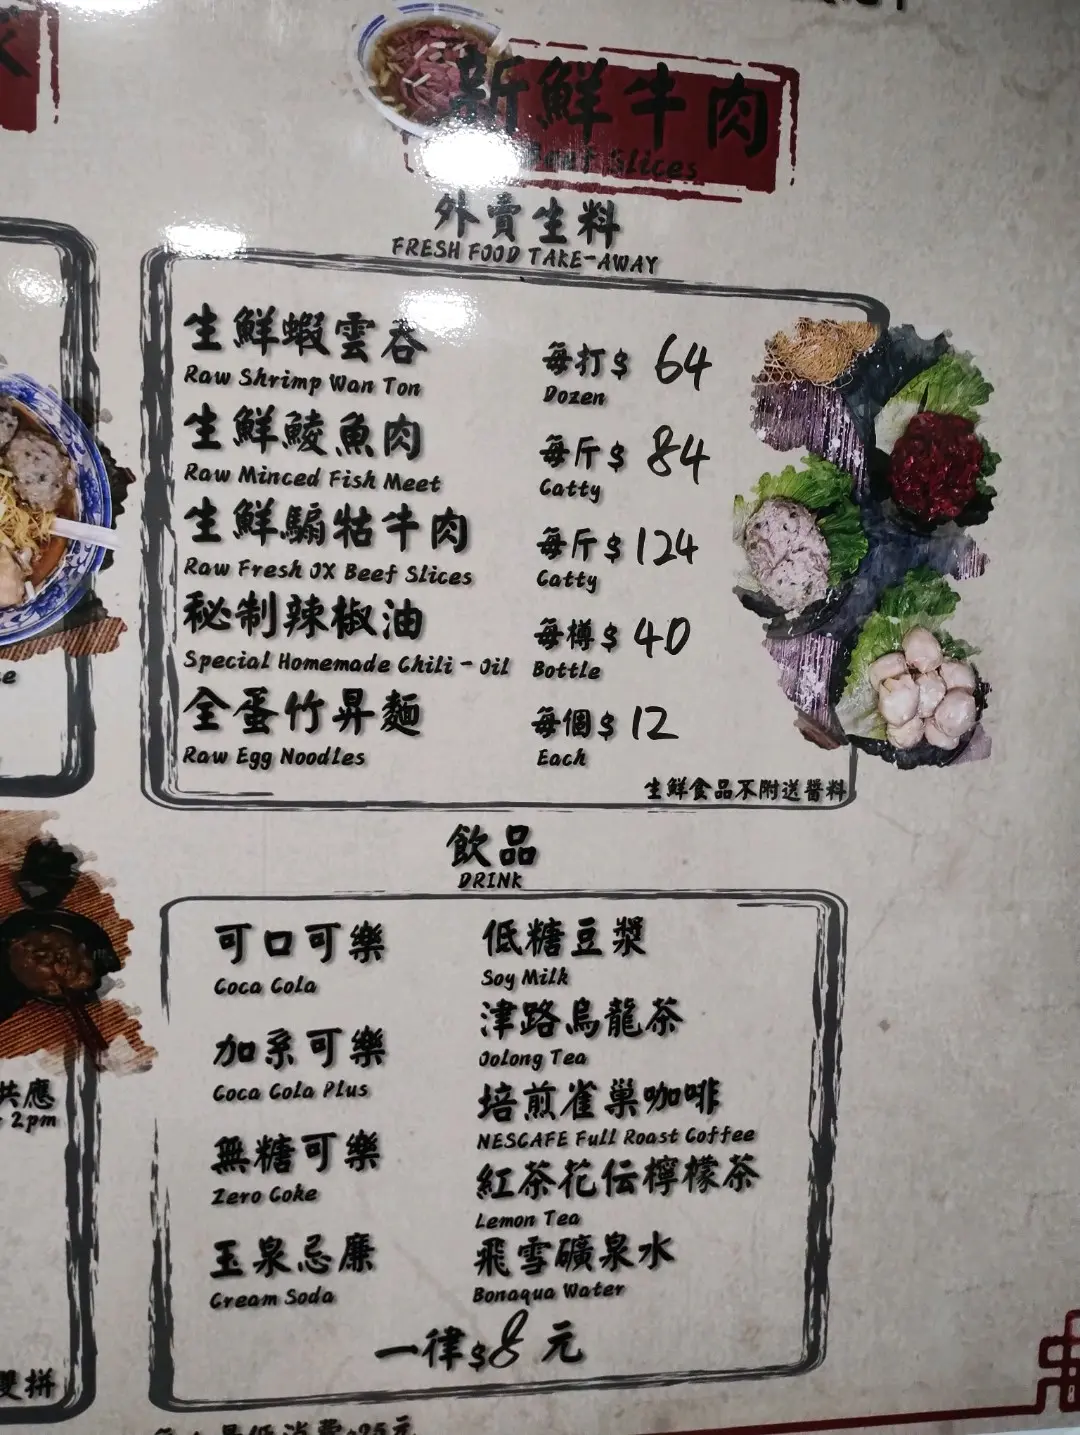 新鮮牛肉
Beef Slices
外賣生料
FRESH FOOD TAKE-AWAY
生鮮蝦雲吞 每打$ 64
Raw Shrimp Wan Ton Dozen
生鮮鯪魚肉 每斤$ 84
Raw Minced Fish Meet Catty
生鮮騸牯牛肉 每斤$ 124
Raw Fresh OX Beef Slices Catty
秘制辣椒油 每樽$ 40
Special Homemade Chili - Oil Bottle
全蛋竹昇麵 每個$ 12
Raw Egg Noodles Each
生鮮食品不附送醬料
飲品
DRINK
可口可樂
Coca Cola
加系可樂
Coca Cola Plus
無糖可樂
Zero Coke
玉泉忌廉
Cream Soda
低糖豆漿
Soy Milk
津路烏龍茶
Oolong Tea
培煎雀巢咖啡
NESCAFE Full Roast Coffee
紅茶花伝檸檬茶
Lemon Tea
飛雪礦泉水
Bonaqua Water
一律$8 元
共應
2pm
雙拼